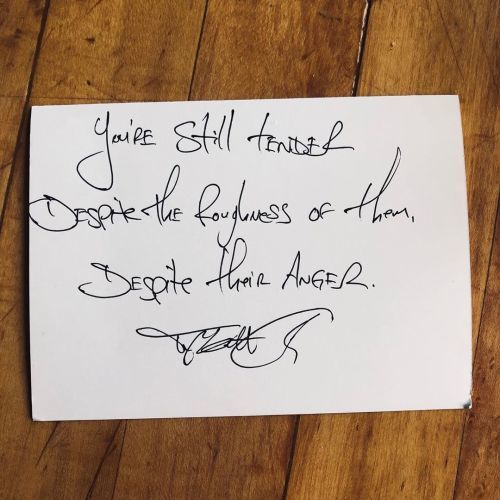 You're still tender
Despite the Roughness of them,
Despite their Anger.